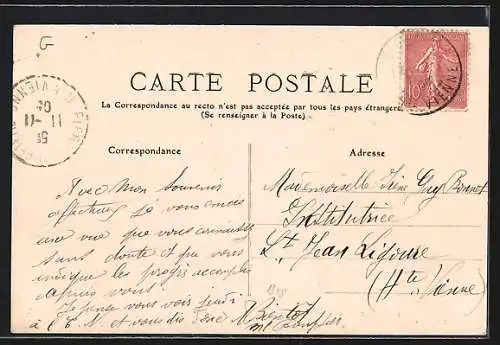 G
CARTE POSTALE
La Correspondance au recto n'est pas acceptée par tous les pays étrangers
(Se renseigner à la Poste.)
Correspondance
Avec mon Souvenir
affectueux je vous envoie
une vue que vous connaissez
sans doute et que vous
indique les progrès accomplis
depuis vous.
Je pense vous voir jeudi
à et vous dis
Bientôt
Adresse
Mademoiselle Guy Bonnet
Institutrice
St Jean Ligoure
(Hte Vienne)
10c
VIENNE
11 -11
05
VIENNE